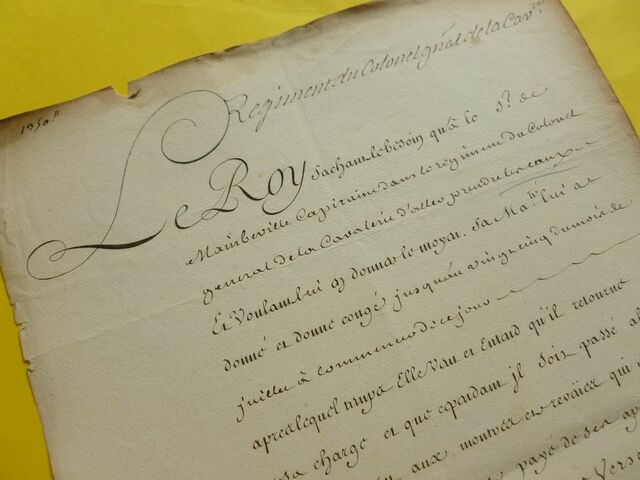 1350ᵗᵗ
Regiment du Colonel gñal de la Cavrie
Le Roy Sachant le besoin qu'a le Sr. de
Mainbeville Capitaine dans le regiment du Colonel
general de la Cavalerie d'aller prendre les eaux
Et Voulant lui en donner le moyen. Sa Maté. lui a
donné et donne congé jusqu'au vingt cinq du mois de
juillet à commencer de ce jour
apres lequel temps Elle Veut et Entend qu'il retourne
sa charge et que cependant il soit passé
aux montres et reveües qui
payé de ses
Vers